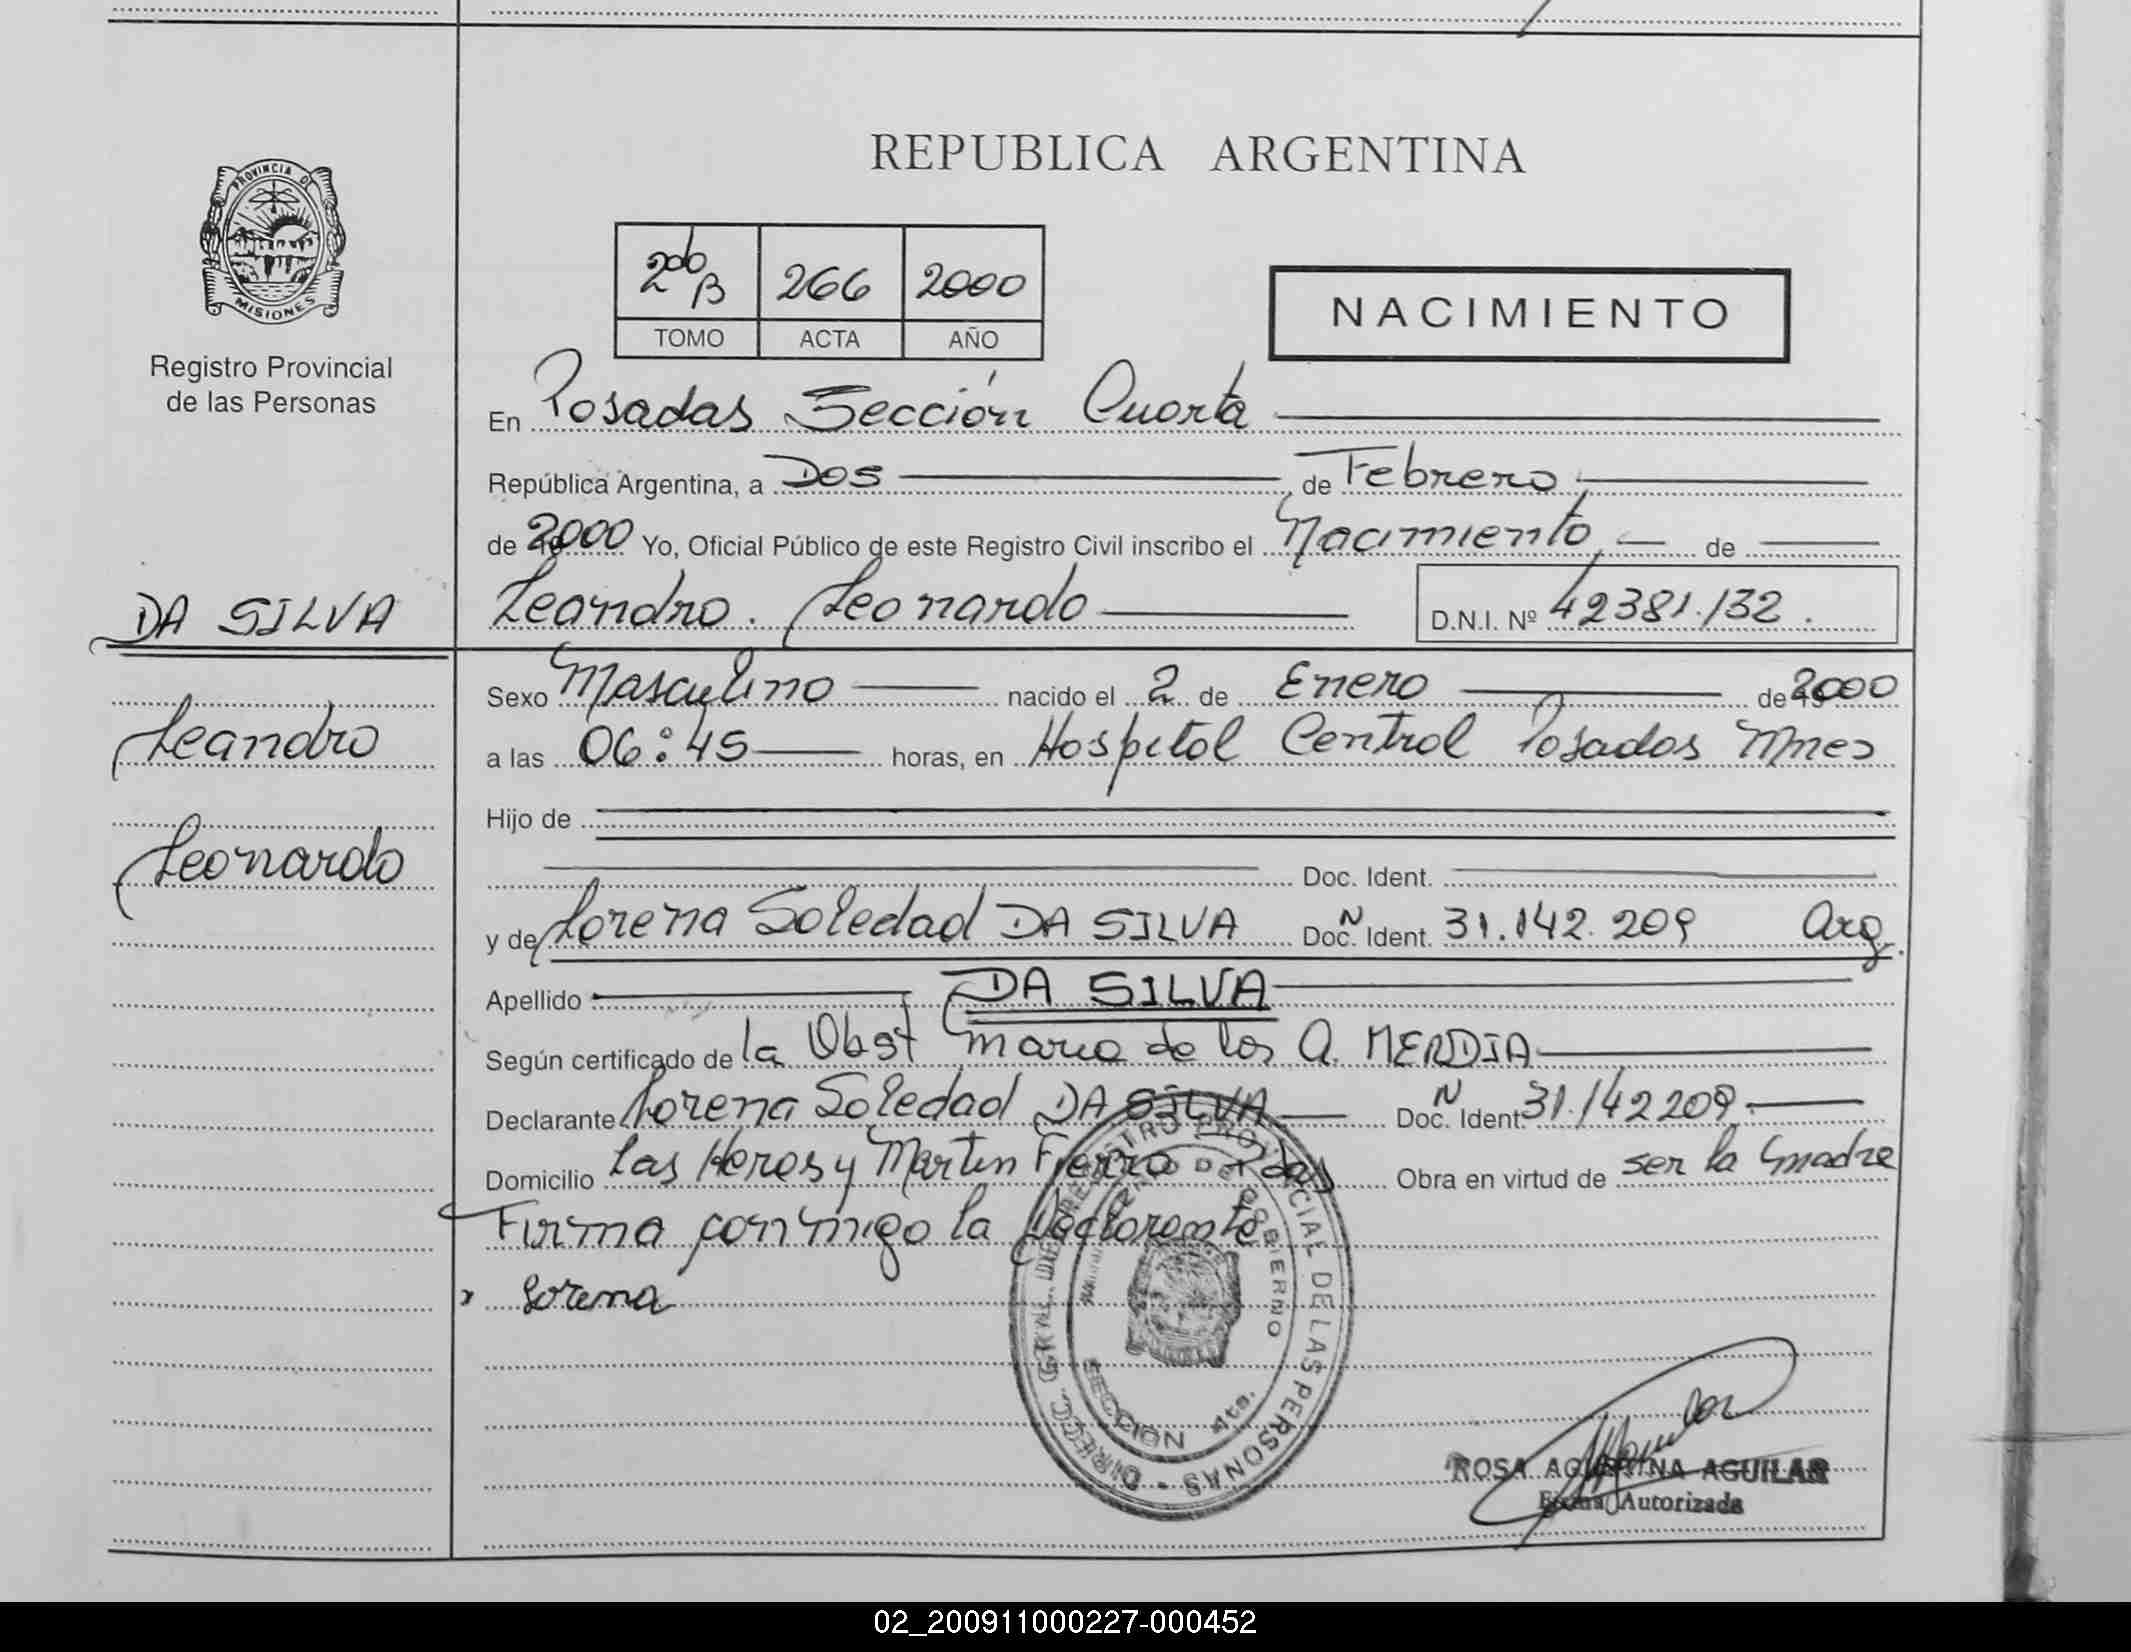 REPUBLICA ARGENTINA
PROVINCIA DE
MISIONES
Registro Provincial
de las Personas
2do B 266 2000
TOMO ACTA AÑO
NACIMIENTO
En Posadas Sección Cuarta
República Argentina, a Dos de Febrero
de 2000 Yo, Oficial Público de este Registro Civil inscribo el Nacimiento de
DA SILVA
Leandro Leonardo D.N.I. Nº 42381.132.
Sexo Masculino nacido el 2 de Enero de 2000
Leandro
a las 06:45 horas, en Hospital Central Posadas Mnes
Hijo de
Leonardo
Doc. Ident.
y de Lorena Soledad DA SILVA Doc. N Ident. 31.142.209 Arg.
Apellido DA SILVA
Según certificado de la Obst Maria de los A. MERDIA
Declarante Lorena Soledad DA SILVA Doc. N Ident. 31.142209.
Domicilio Las Heras y Martin Fierro Pdas Obra en virtud de ser la madre
Firma conmigo la Declarante
Lorena
DIREC. GRAL. DE REGISTRO PROVINCIAL DE LAS PERSONAS
DE GOBIERNO
SECCION 4ta.
ROSA AGUSTINA AGUILAR
Firma Autorizada
02_200911000227-000452